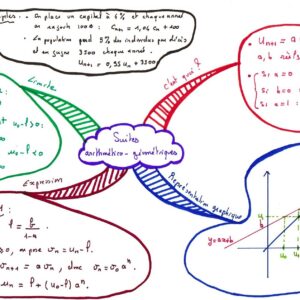 On place un capital à 6% et chaque année
on rajoute 100€ : Cₙ₊₁ = 1,06 Cₙ + 100
La population perd 5% des individus par décès
et en gagne 3500 chaque année.
Uₙ₊₁ = 0,95 uₙ + 3500
c'est quoi ?
Uₙ₊₁ = a
a, b réels
Si a = 0
Si b = 0
Si a = 1 :
Limite
u₀-l > 0 :
u₀-l < 0
Suites
arithmético-géométriques
Expression
l = b/1-a
, on pose vₙ = uₙ - l.
vₙ₊₁ = a vₙ, donc vₙ = v₀ aⁿ
= l + (u₀-l) aⁿ.
Représentation graphique
y=ax+b
u₁
u₀